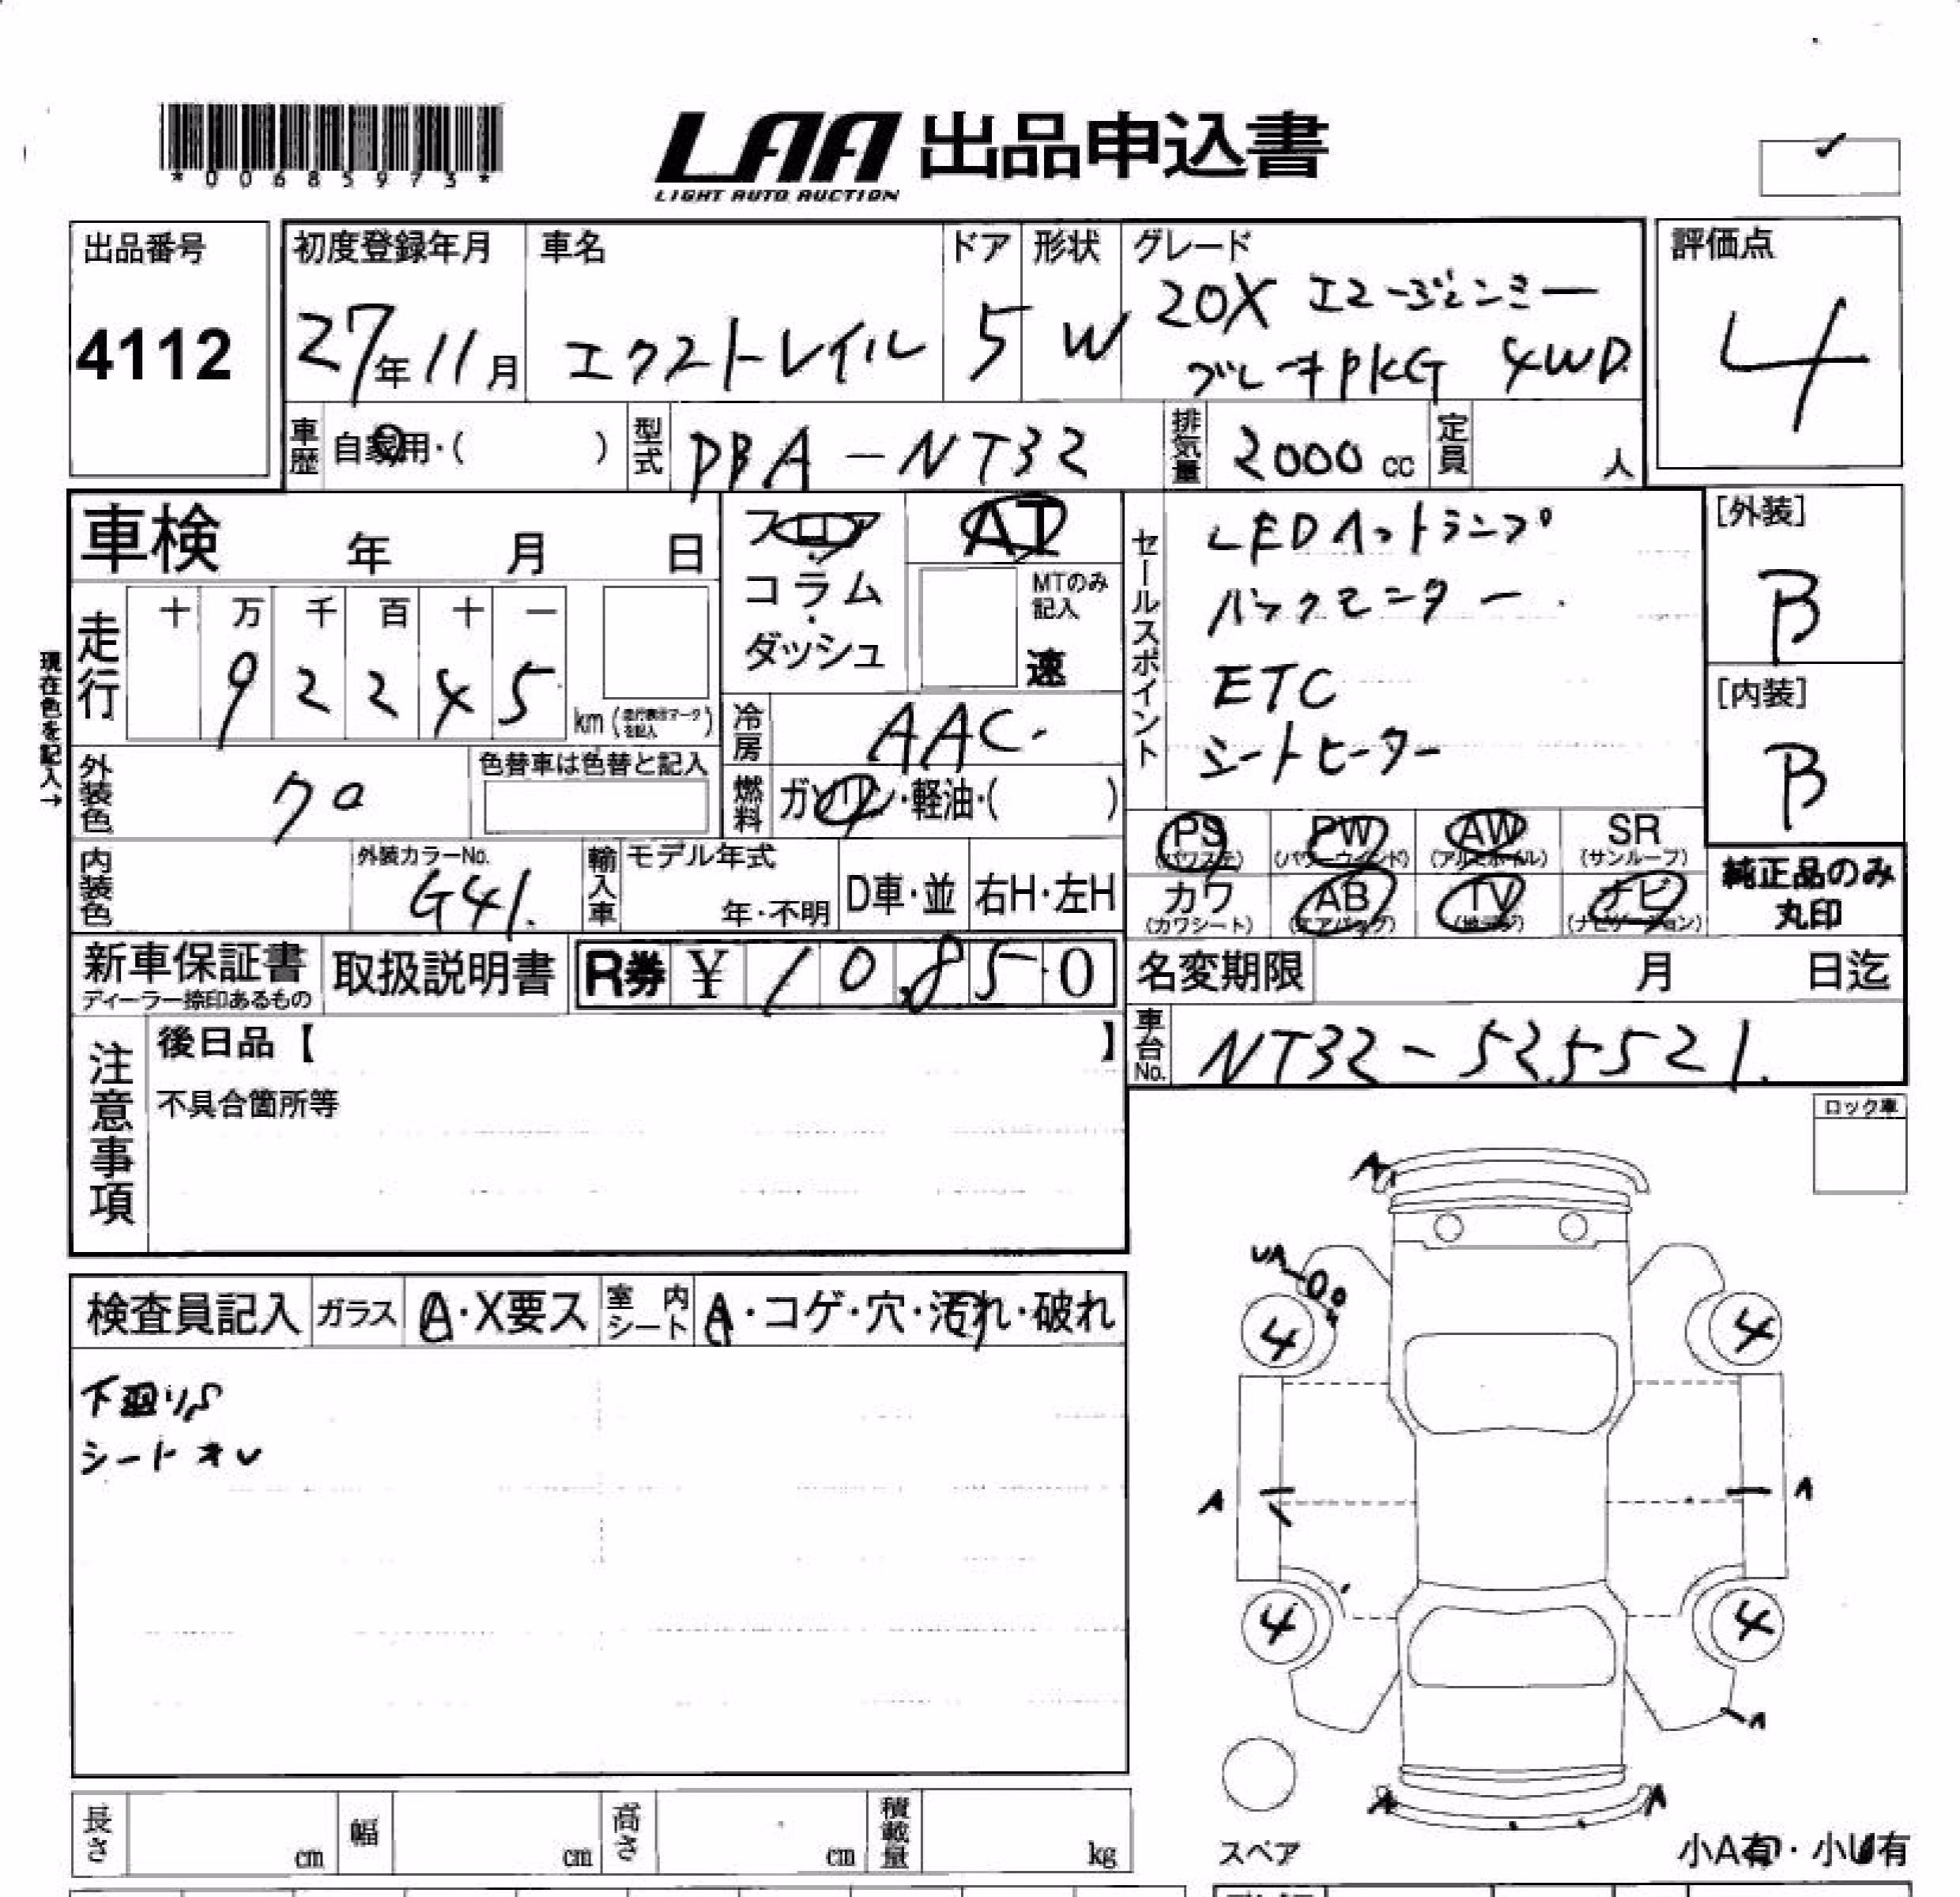 *00685973*
LAA 出品申込書
LIGHT AUTO AUCTION
出品番号
4112
初度登録年月
27年11月
車名
エクストレイル
ドア
5
形状
W
グレード
20X エマージェンシー
ブレーキPKG 4WD
評価点
4
車歴 自家用・( )
型式 DBA-NT32
排気量 2000 cc
定員 人
車検 年 月 日
フロア・コラム・ダッシュ
AT
MTのみ記入
速
走行 十 万 千 百 十 一
92245 km
現在色を記入→
冷房 AAC
燃料 ガソリン・軽油・( )
外装色 クロ
色替車は色替と記入
内装色
外装カラーNo.
G41.
輸入車 モデル年式
年・不明
D車・並
右H・左H
セールスポイント
LEDヘットランプ
バックモニター
ETC
シートヒーター
[外装]
B
[内装]
B
PS (パワステ)
PW (パワーウィンド)
AW (アルミホイル)
SR (サンルーフ)
カワ (カワシート)
AB (エアバッグ)
TV (地デジ)
ナビ (ナビゲーション)
純正品のみ
丸印
新車保証書
ディーラー捺印あるもの
取扱説明書
R券 ¥ 10,850
名変期限 月 日迄
車台No. NT32-525521.
注意事項
後日品【 】
不具合箇所等
ロック車
検査員記入
ガラス A・X要ス
室内シート A・コゲ・穴・汚れ・破れ
シート
A
UA
4
4
A
A
4
4
A
A
A
スペア
小A有・小U有
長さ cm
幅 cm
高さ cm
積載量 kg